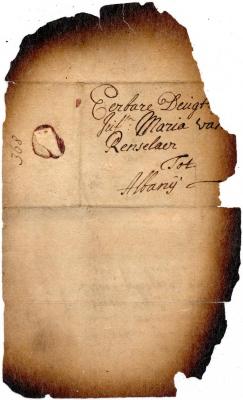 Eerbare Deugt
Juff:ʷ Maria van
Renselaer
Tot
Albanÿ
368